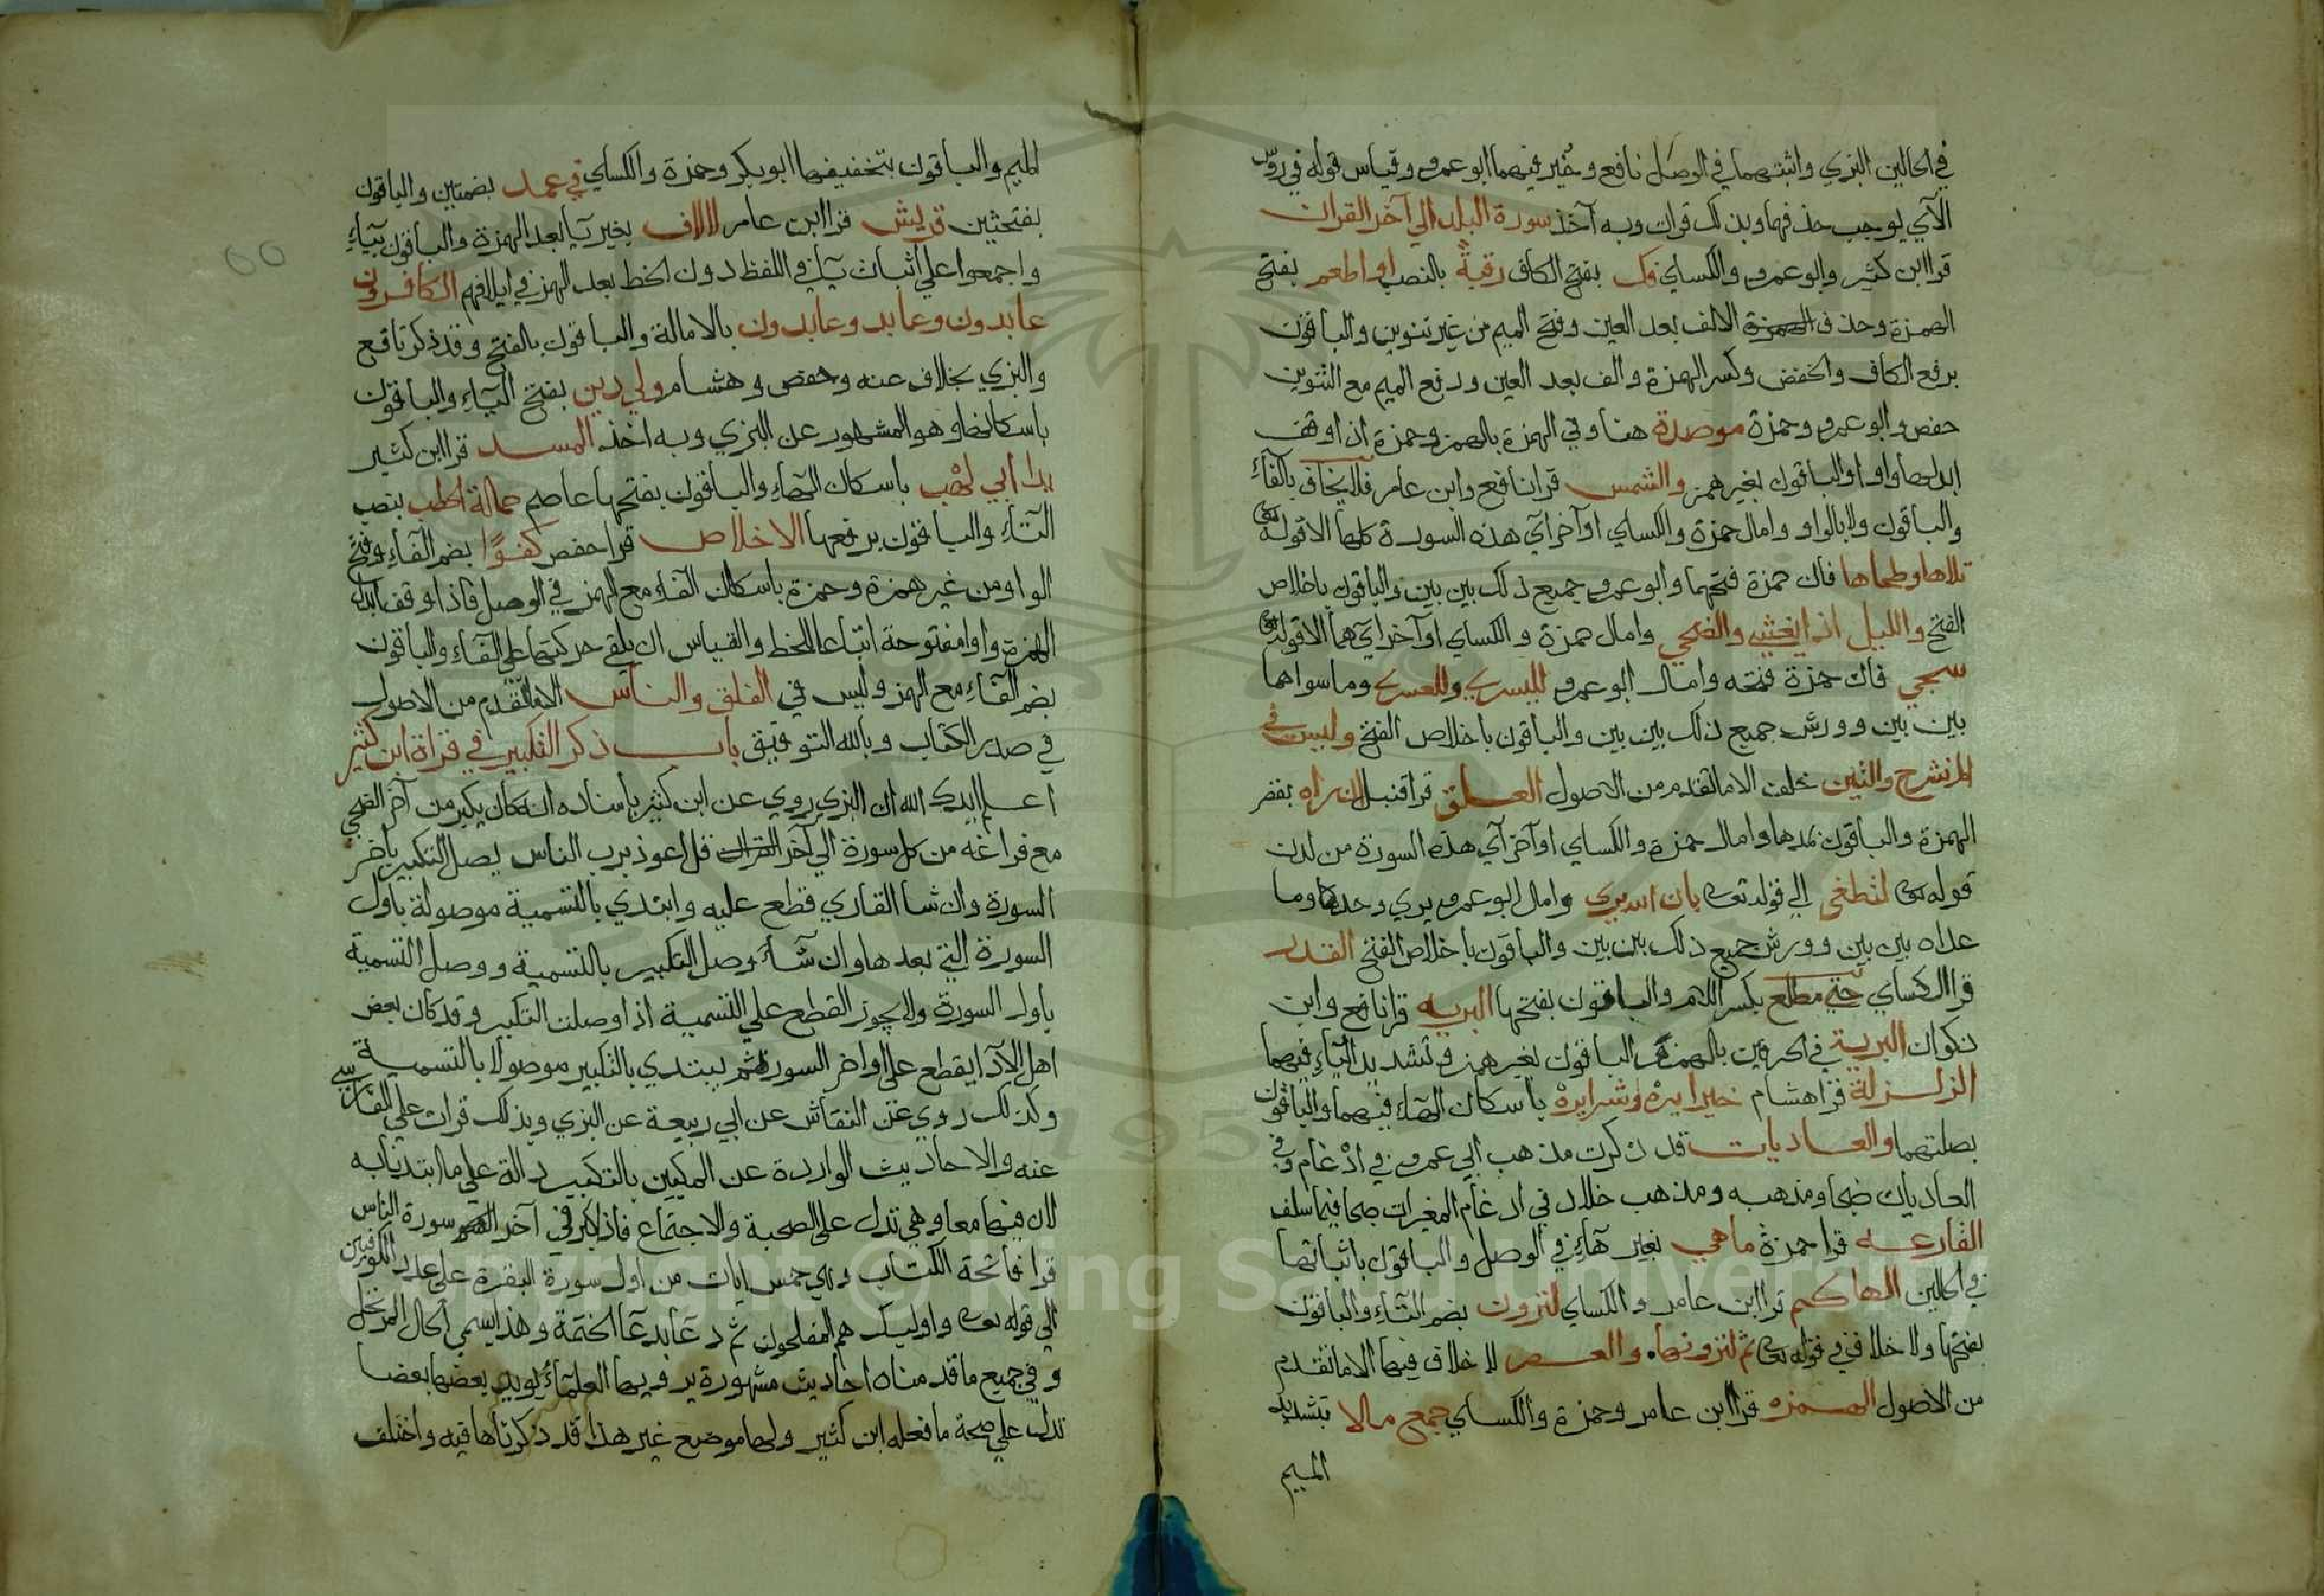 في الحالين البزي واثبتهما في الوصل نافع وخير فيهما ابو عمرو وقياس قوله في روس
الآي يوجب حذفهما وبذلك قرات وبه آخذ سورة البلد الي آخر القران
قرا ابن كثير وابو عمرو والكساي فك بفتح الكاف رقبةً بالنصب او اطعم بفتح
الهمزة وحذف الالف بعد العين وفتح الميم من غير تنوين والباقون
برفع الكاف والخفض وكسر الهمزة والف بعد العين ورفع الميم مع التنوين
حفص وابو عمرو وحمزة موصدة هنا وفي الهمزة بالهمز وحمزة اذا وقف
ابدلها واوا والباقون بغير همز والشمس قرا نافع وابن عامر فلا يخاف بالفآء
والباقون ولا بالواو وامال حمزة والكساي اواخر آي هذه السورة كلها الا قوله تعالى
تلاها وطحاها فان حمزة فتحهما وابو عمرو جميع ذلك بين بين والباقون باخلاص
الفتح والليل اذا يغشي والضحي وامال حمزة والكساي اوآخر آيهما الا قوله تعالى
سجي فان حمزة فتحه وامال ابو عمرو لليسري وللعسري وما سواهما
بين بين وورش جميع ذلك بين بين والباقون باخلاص الفتح وليس في
الم نشرح والتين خلف الا ما تقدم من الاصول العلق قرا قنبل ان راه بقصر
الهمزة والباقون بمدها وامال حمزة والكساي اوآخر آي هذه السورة من لدن
قوله تعالى لتطغى الي قوله تعالى بان الله يري وامال ابو عمرو يري وحدها وما
عداه بين بين وورش جميع ذلك بين بين والباقون باخلاص الفتح القدر
قرا الكساي حتي مطلع بكسر اللام والباقون بفتحها البريه قرا نافع وابن
ذكوان البرية في الحرفين بالهمز والباقون بغير همز وتشديد اليآء فيهما
الزلزلة قرا هشام خيرا يرهْ وشرا يرهْ باسكان الهآء فيهما والباقون
بصلتهما والعاديات قد ذكرت مذهب ابي عمرو في ادْغام وفي
العاديات ضبحا ومذهبه ومذهب خلاد في ادغام المغيرات صبحا فيما سلف
القارعه قرا حمزة ما هي بغير هآء في الوصل والباقون باثباتها
في الحالين الهاكم قرا ابن عامر والكساي لترون بضم التآء والباقون
بفتحها ولا خلاف في قوله تعالى ثم لترونها والعصر لا خلاف فيها الا ما تقدم
من الاصول الهمزه قرا ابن عامر وحمزة والكساي جمع مالا بتشديد
الميم
الميم والباقون بتخفيفها ابو بكر وحمزة والكساي في عمد بضمتين والباقون
بفتحتين قريش قرا ابن عامر لالاف بغير يآ بعد الهمزة والباقون بيآء
واجمعوا علي اثبات يآ في اللفظ دون الخط بعد الهمز في ايلافهم الكافرون
عابدون وعابد وعابدون بالامالة والباقون بالفتح وقد ذكر نافع
والبزي بخلاف عنه وحفص وهشام ولي دين بفتح اليآء والباقون
باسكانها وهو المشهور عن البزي وبه اخذ المسد قرا ابن كثير
يدا ابي لهْب باسكان الهآء والباقون بفتحها عاصم حمالة الحطب بنصب
التآء والباقون برفعها الاخلاص قرا حفص كفوًا بضم الفآء وفتح
الواو من غير همزة وحمزة باسكان الفآء مع الهمز في الوصل فاذا وقف ابدل
الهمزة واوا مفتوحة اتباعا للخط والقياس ان يلقي حركتها علي الفآء والباقون
بضم الفآء مع الهمز وليس في الفلق والناس الا ما تقدم من الاصول
في صدر الكتاب وبالله التوفيق باب ذكر التكبير في قراة ابن كثير
اعلم ايدك الله ان البزي روي عن ابن كثير باسناده انه كان يكبر من آخر الضحي
مع فراغه من كل سورة الي آخر القران قل اعوذ برب الناس يصل التكبير باخر
السورة وان شا القاري قطع عليه وابتدي بالتسمية موصولة باول
السورة التي بعدها وان شآء وصل التكبير بالتسمية ووصل التسمية
باول السورة ولا يجوز القطع علي التسمية اذا وصلت التكبير وقد كان بعض
اهل الادآ يقطع علي اواخر السورة ثم يبتدي بالتكبير موصولا بالتسمية
وكذلك روي عن النقاش عن ابي ربيعة عن البزي وبذلك قرات علي الفارسي
عنه والاحاديث الواردة عن المكيين بالتكبير دالة علي ما ابتدينا به
لان فيها مع وهي تدل علي الصحبة والاجتماع فاذا كبر في آخر سورة الناس
قرا فاتحة الكتاب وخمس ايات من اول سورة البقرة علي عدد الكوفيين
الي قوله تعالى واوليك هم المفلحون ثم دعا بدعآ الختمة وهذا يسمي الحال المرتحل
وفي جميع ما قدمناه احاديث مشهورة يرويها العلمآء يويد بعضها بعضا
تدل علي صحة ما فعله ابن كثير ولها موضع غير هذا قد ذكرناها فيه واختلف
Copyright © King Saud University